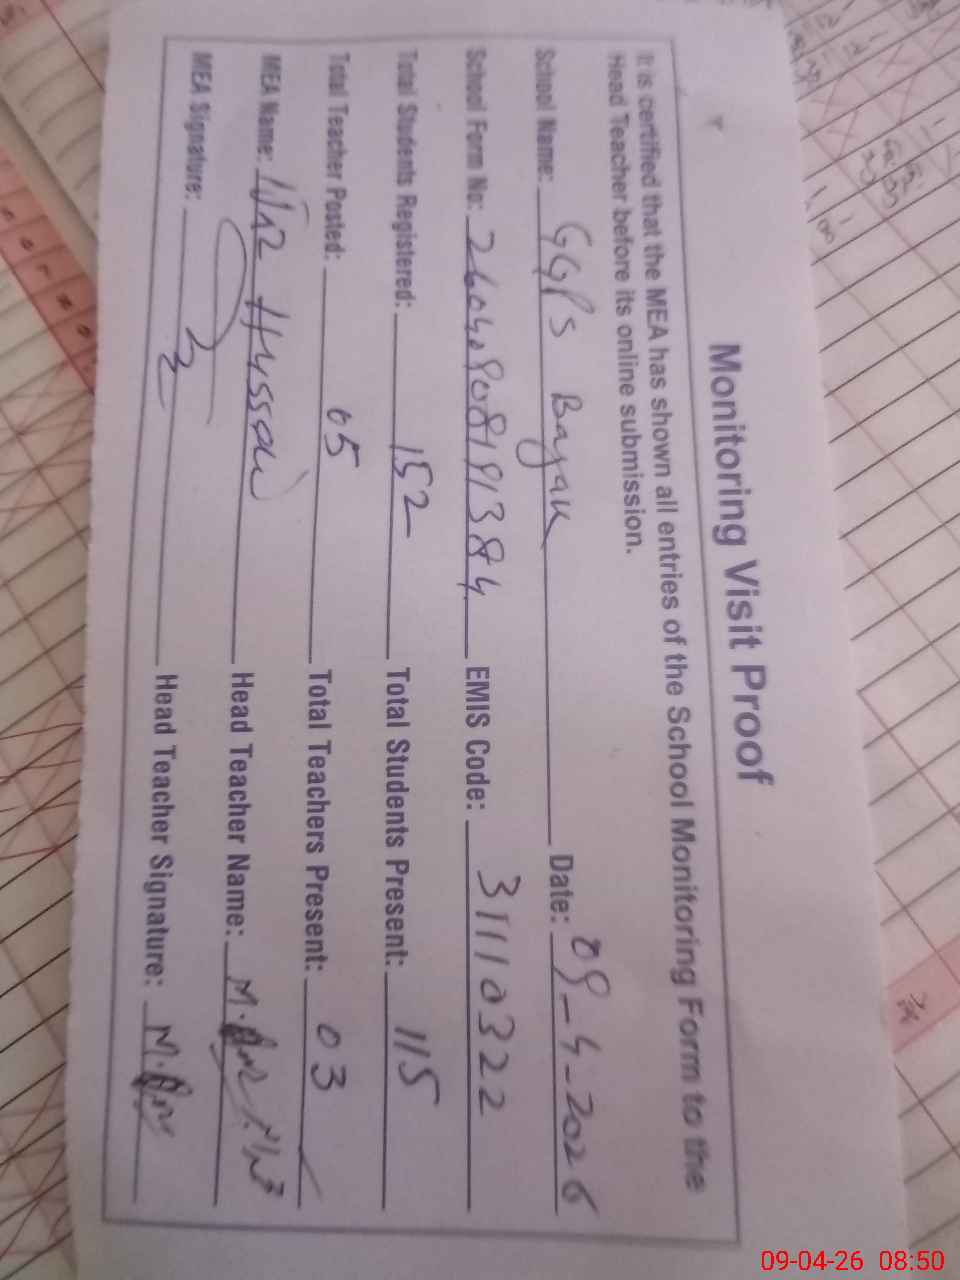 Monitoring Visit Proof
It is certified that the MEA has shown all entries of the School Monitoring Form to the
Head Teacher before its online submission.
School Name: GGPS Date: 09-4-2026
School Form No: 26040908191384 EMIS Code: 31110322
Total Students Registered: 152 Total Students Present: 115
Total Teacher Posted: 05 Total Teachers Present: 03
MEA Name: Hussain Head Teacher Name:
MEA Signature: Head Teacher Signature:
09-04-26 08:50